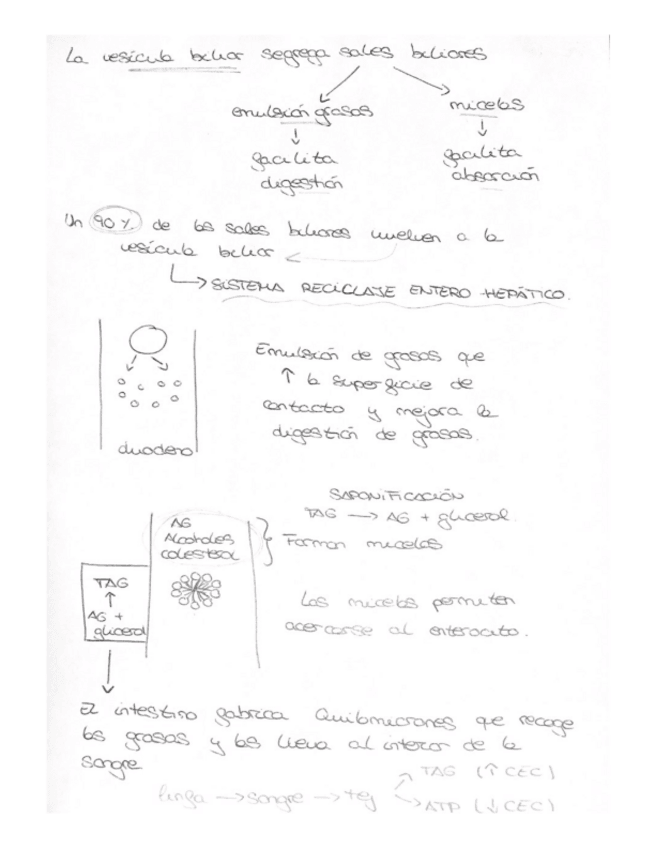 La vesícula biliar segrega sales biliares
emulsión grasas
micelas
↓
↓
facilita
facilita
digestión
absorción
Un 90% de las sales biliares vuelven a la
vesícula biliar
↳ SISTEMA RECICLAJE ENTERO HEPÁTICO.
Emulsión de grasas que
↑ la superficie de
contacto y mejora la
digestión de grasas.
duodeno
SAPONIFICACIÓN
TAG → AG + glicerol
AG
Alcoholes
colesterol
Forman micelas
TAG
↑
AG +
glicerol
Las micelas permiten
acercarse al enterocito.
El intestino fabrica Quilomicrones que recoge
las grasas y las lleva al interior de la
sangre
linfa → sangre → tej
TAG (↑ CEC)
ATP (↓ CEC)